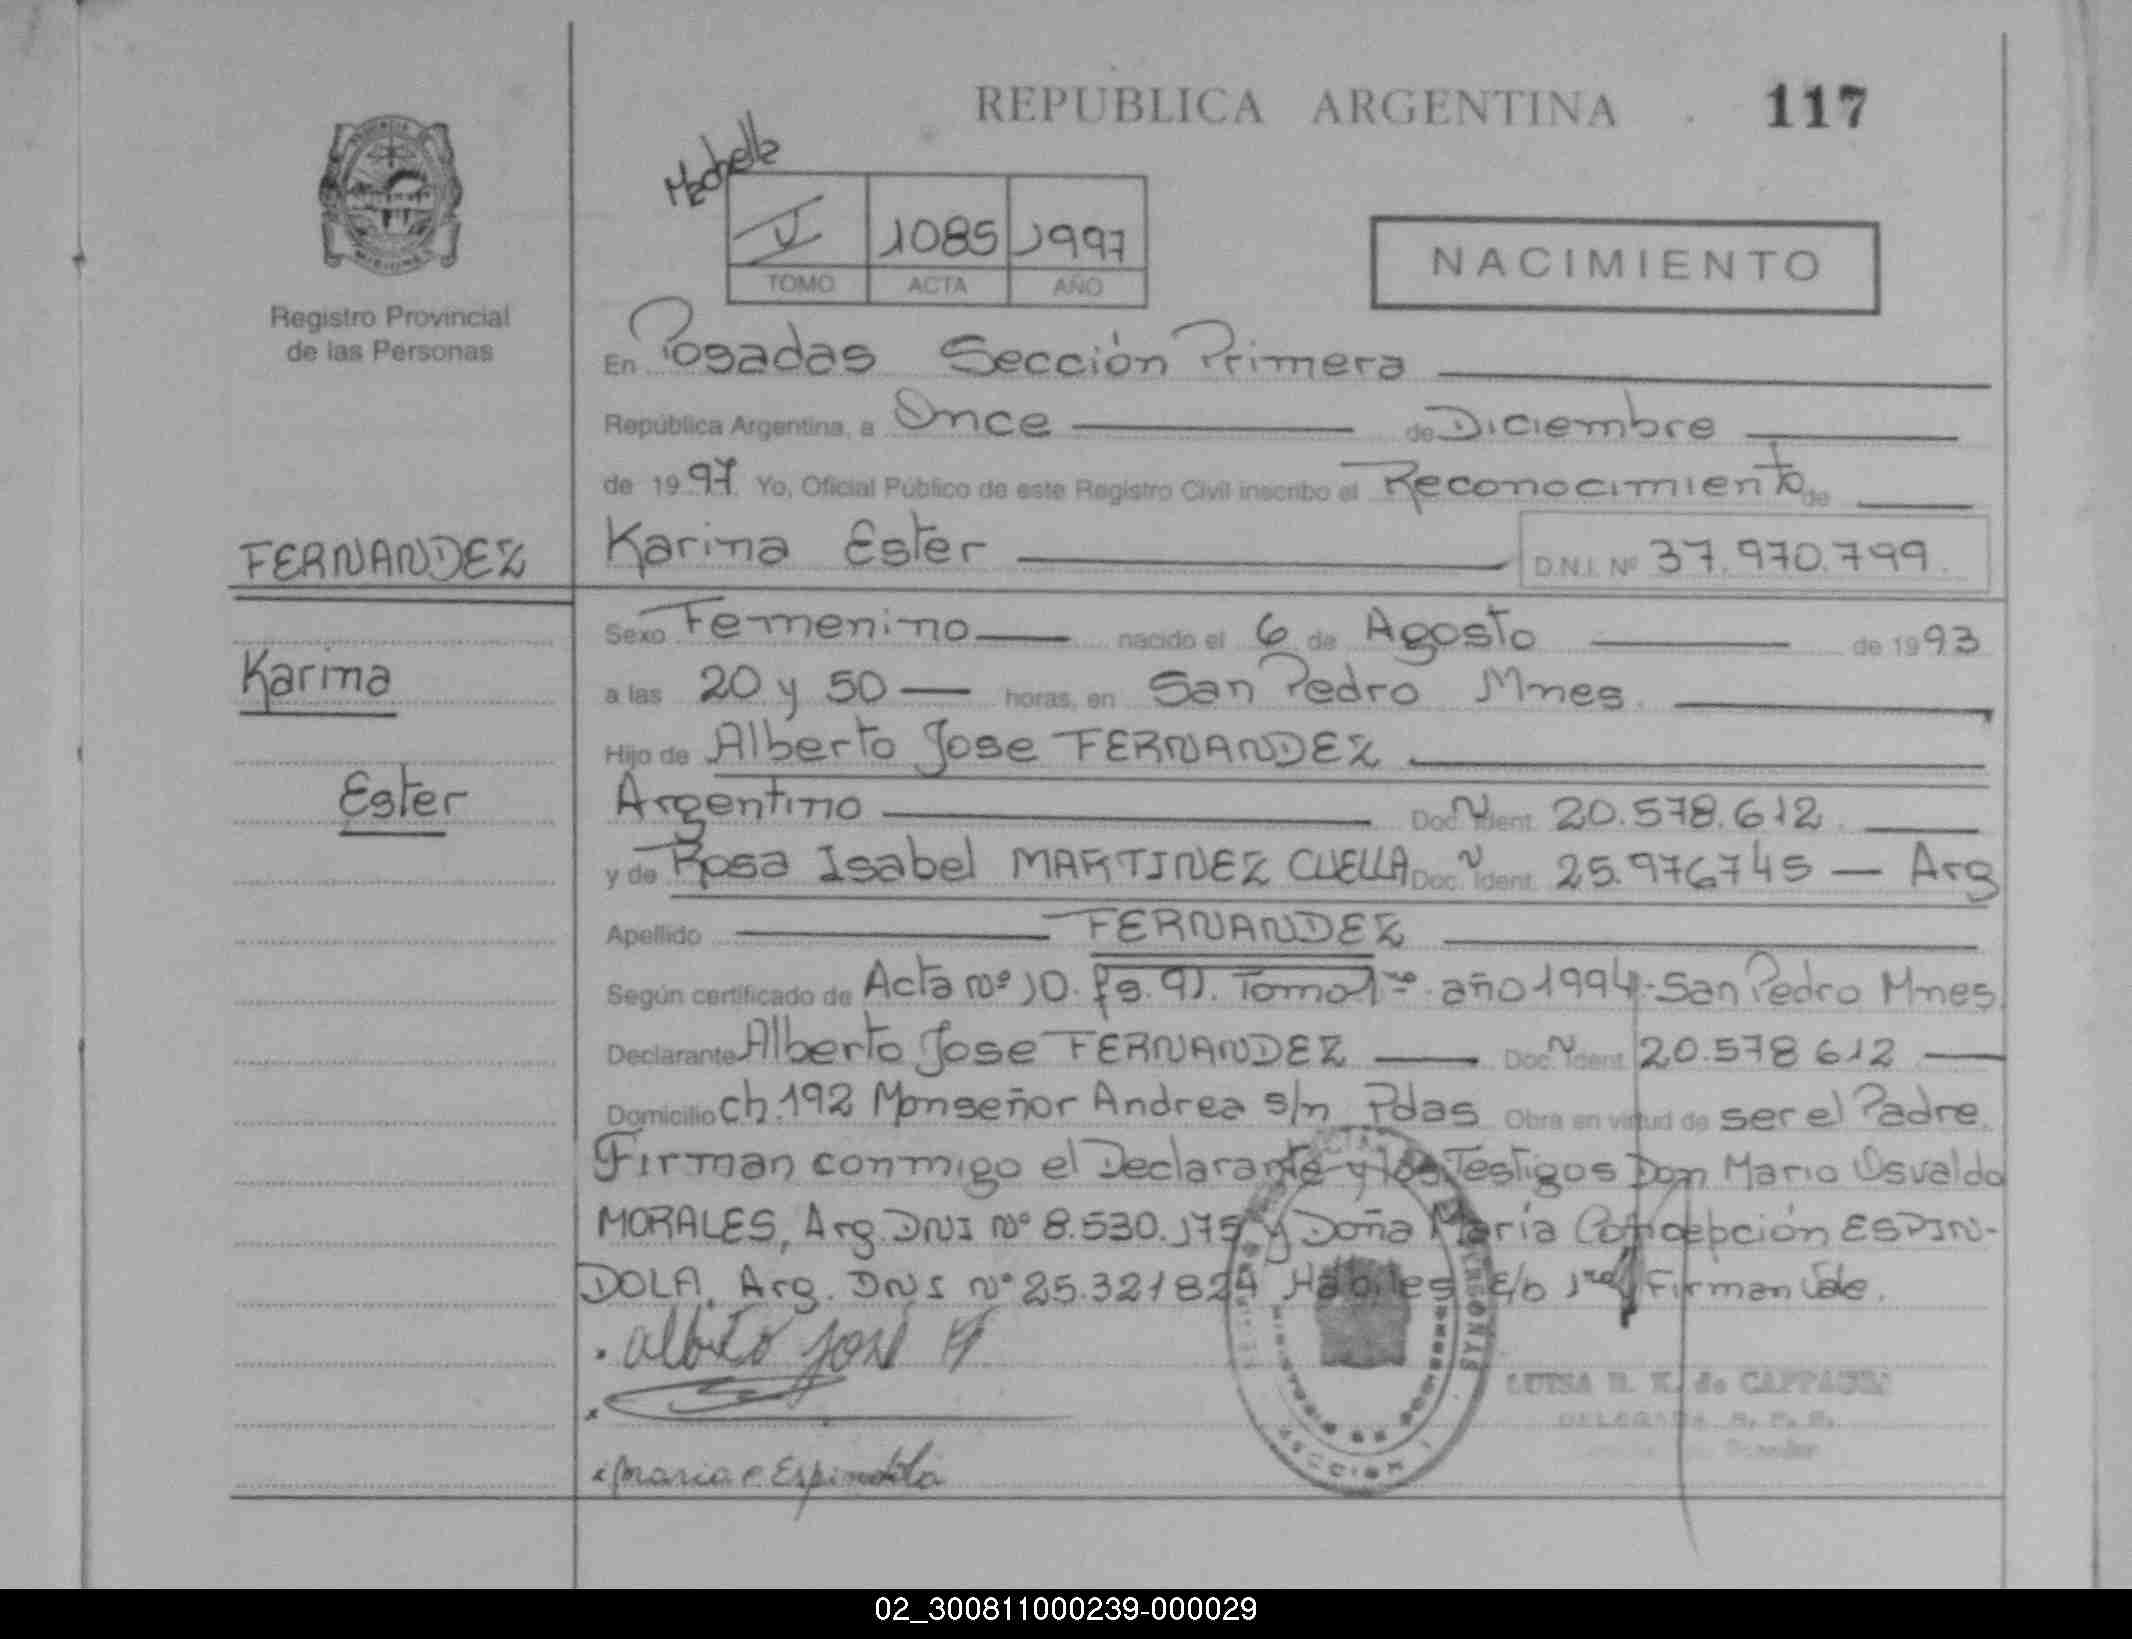 REPUBLICA ARGENTINA 117
V 1085 1997
TOMO ACTA AÑO
NACIMIENTO
Registro Provincial
de las Personas
En Posadas Sección Primera
República Argentina, a Once de Diciembre
de 1997 Yo, Oficial Público de este Registro Civil inscribo el Reconocimiento de
FERNANDEZ
Karina
Ester
Karina Ester D.N.I. Nº 37.970.799.
Sexo Femenino nacido el 6 de Agosto de 1993
a las 20 y 50 horas, en San Pedro Mnes.
Hijo de Alberto Jose FERNANDEZ
Argentino Doc. Ident. 20.578.612
y de Rosa Isabel MARTINEZ CUELLA Doc. Ident. 25.976745 Arg
Apellido FERNANDEZ
Según certificado de Acta nº 10. fs. 91. Tomo 1ro año 1994. San Pedro Mnes.
Declarante Alberto Jose FERNANDEZ Doc. Ident. 20.578612
Domicilio ch.192 Monseñor Andrea s/n Pdas Obra en virtud de ser el Padre.
Firman conmigo el Declarante y los Testigos Don Mario Osvaldo
MORALES, Arg. DNI nº 8.530.175 y Doña María Concepción ESPIN-
DOLA, Arg. DNI nº 25.321824 Habiles E/b 1ra Firman Vale.
Alberto José F
Maria C. Espindola
SECCION 1
LUISA
DELEGADA R. P. P.
02_300811000239-000029